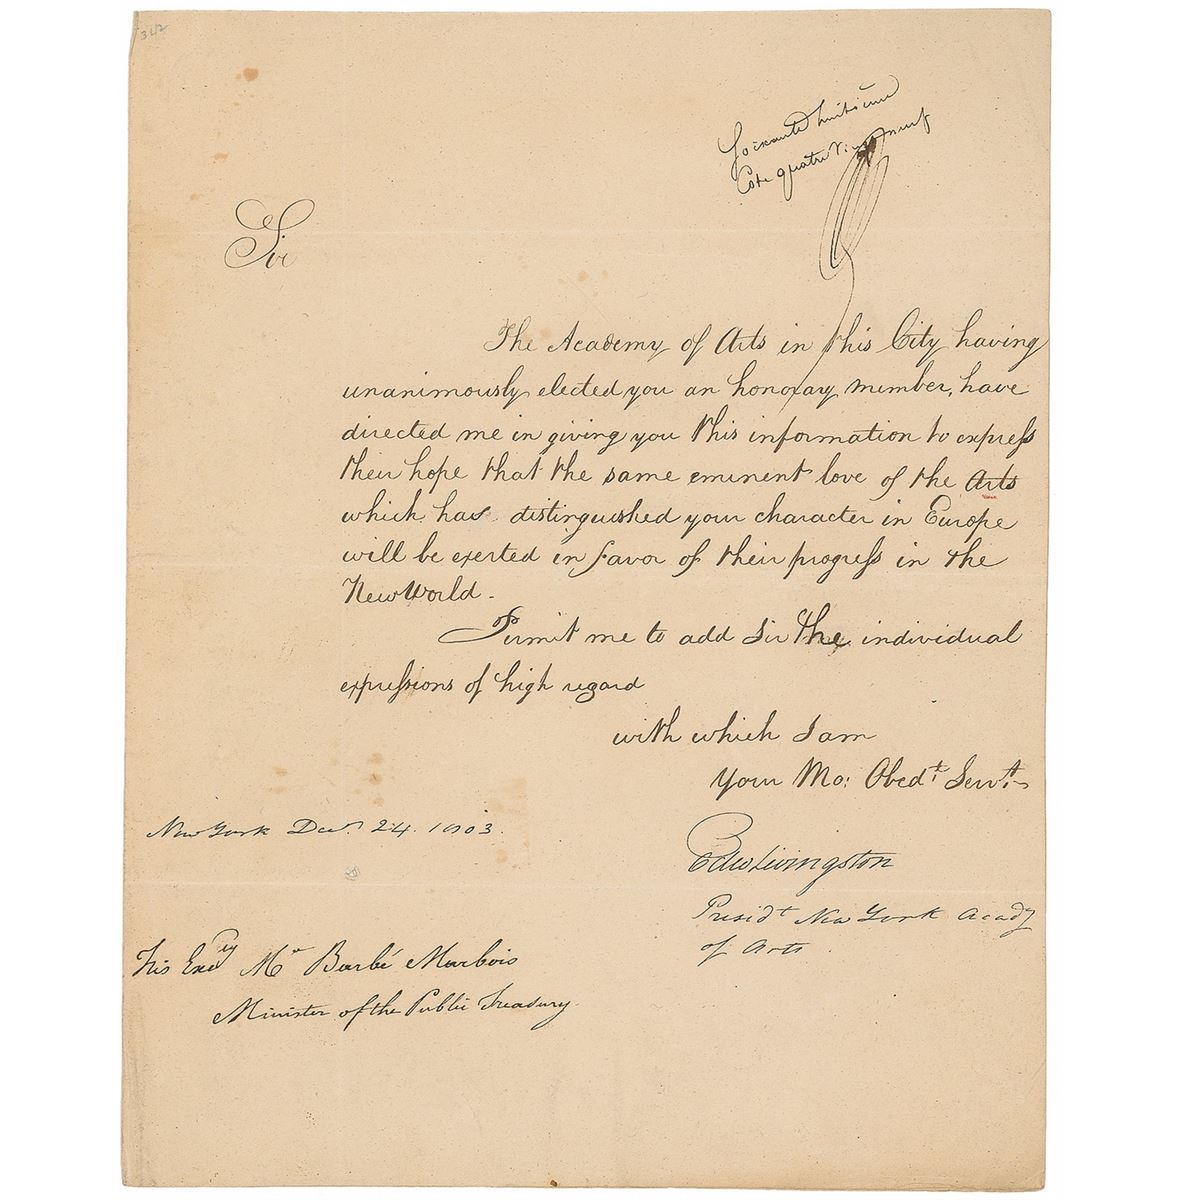 342
Soixante huitieme
Cote quatre vingt neuf
Sir
The Academy of Arts in this City having
unanimously elected you an honoray member, have
directed me in giving you this information to express
their hope that the same eminent love of the Arts
which has distinguished your character in Europe
will be exerted in favor of their progress in the
New World.
Permit me to add Sir the individual
expressions of high regard
with which I am
Your Mo: Obedt. Servt.
New York Decr. 24. 1803.
Edw Livingston
Presidt New York Acady
of Arts.
His Excy Mr Barbé Marbois
Minister of the Public Treasury.